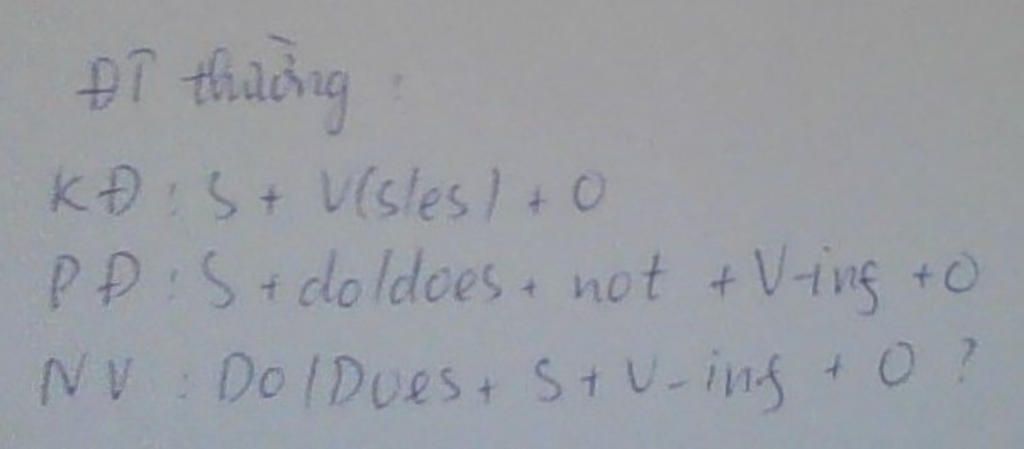 ĐT thường :
KĐ : S + V(s/es) + O
PĐ : S + do/does + not + V-ing + O
NV : Do/Does + S + V-ing + O ?